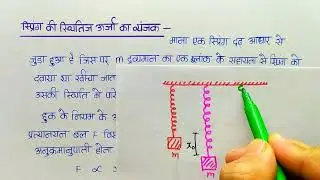 स्प्रिंग की स्थितिज ऊर्जा का व्यंजक -
माना एक स्प्रिंग दृढ़ आधार से
जुड़ा हुआ है जिस पर m द्रव्यमान का एक ब्लॉक के सहायता से स्प्रिंग को
दबाया या खींचा जात
उसकी स्थिति में परि
हुक के नियम के अ
प्रत्यानयन बल F विस
अनुक्रमानुपाती होता
F ∝
x₀
m
m